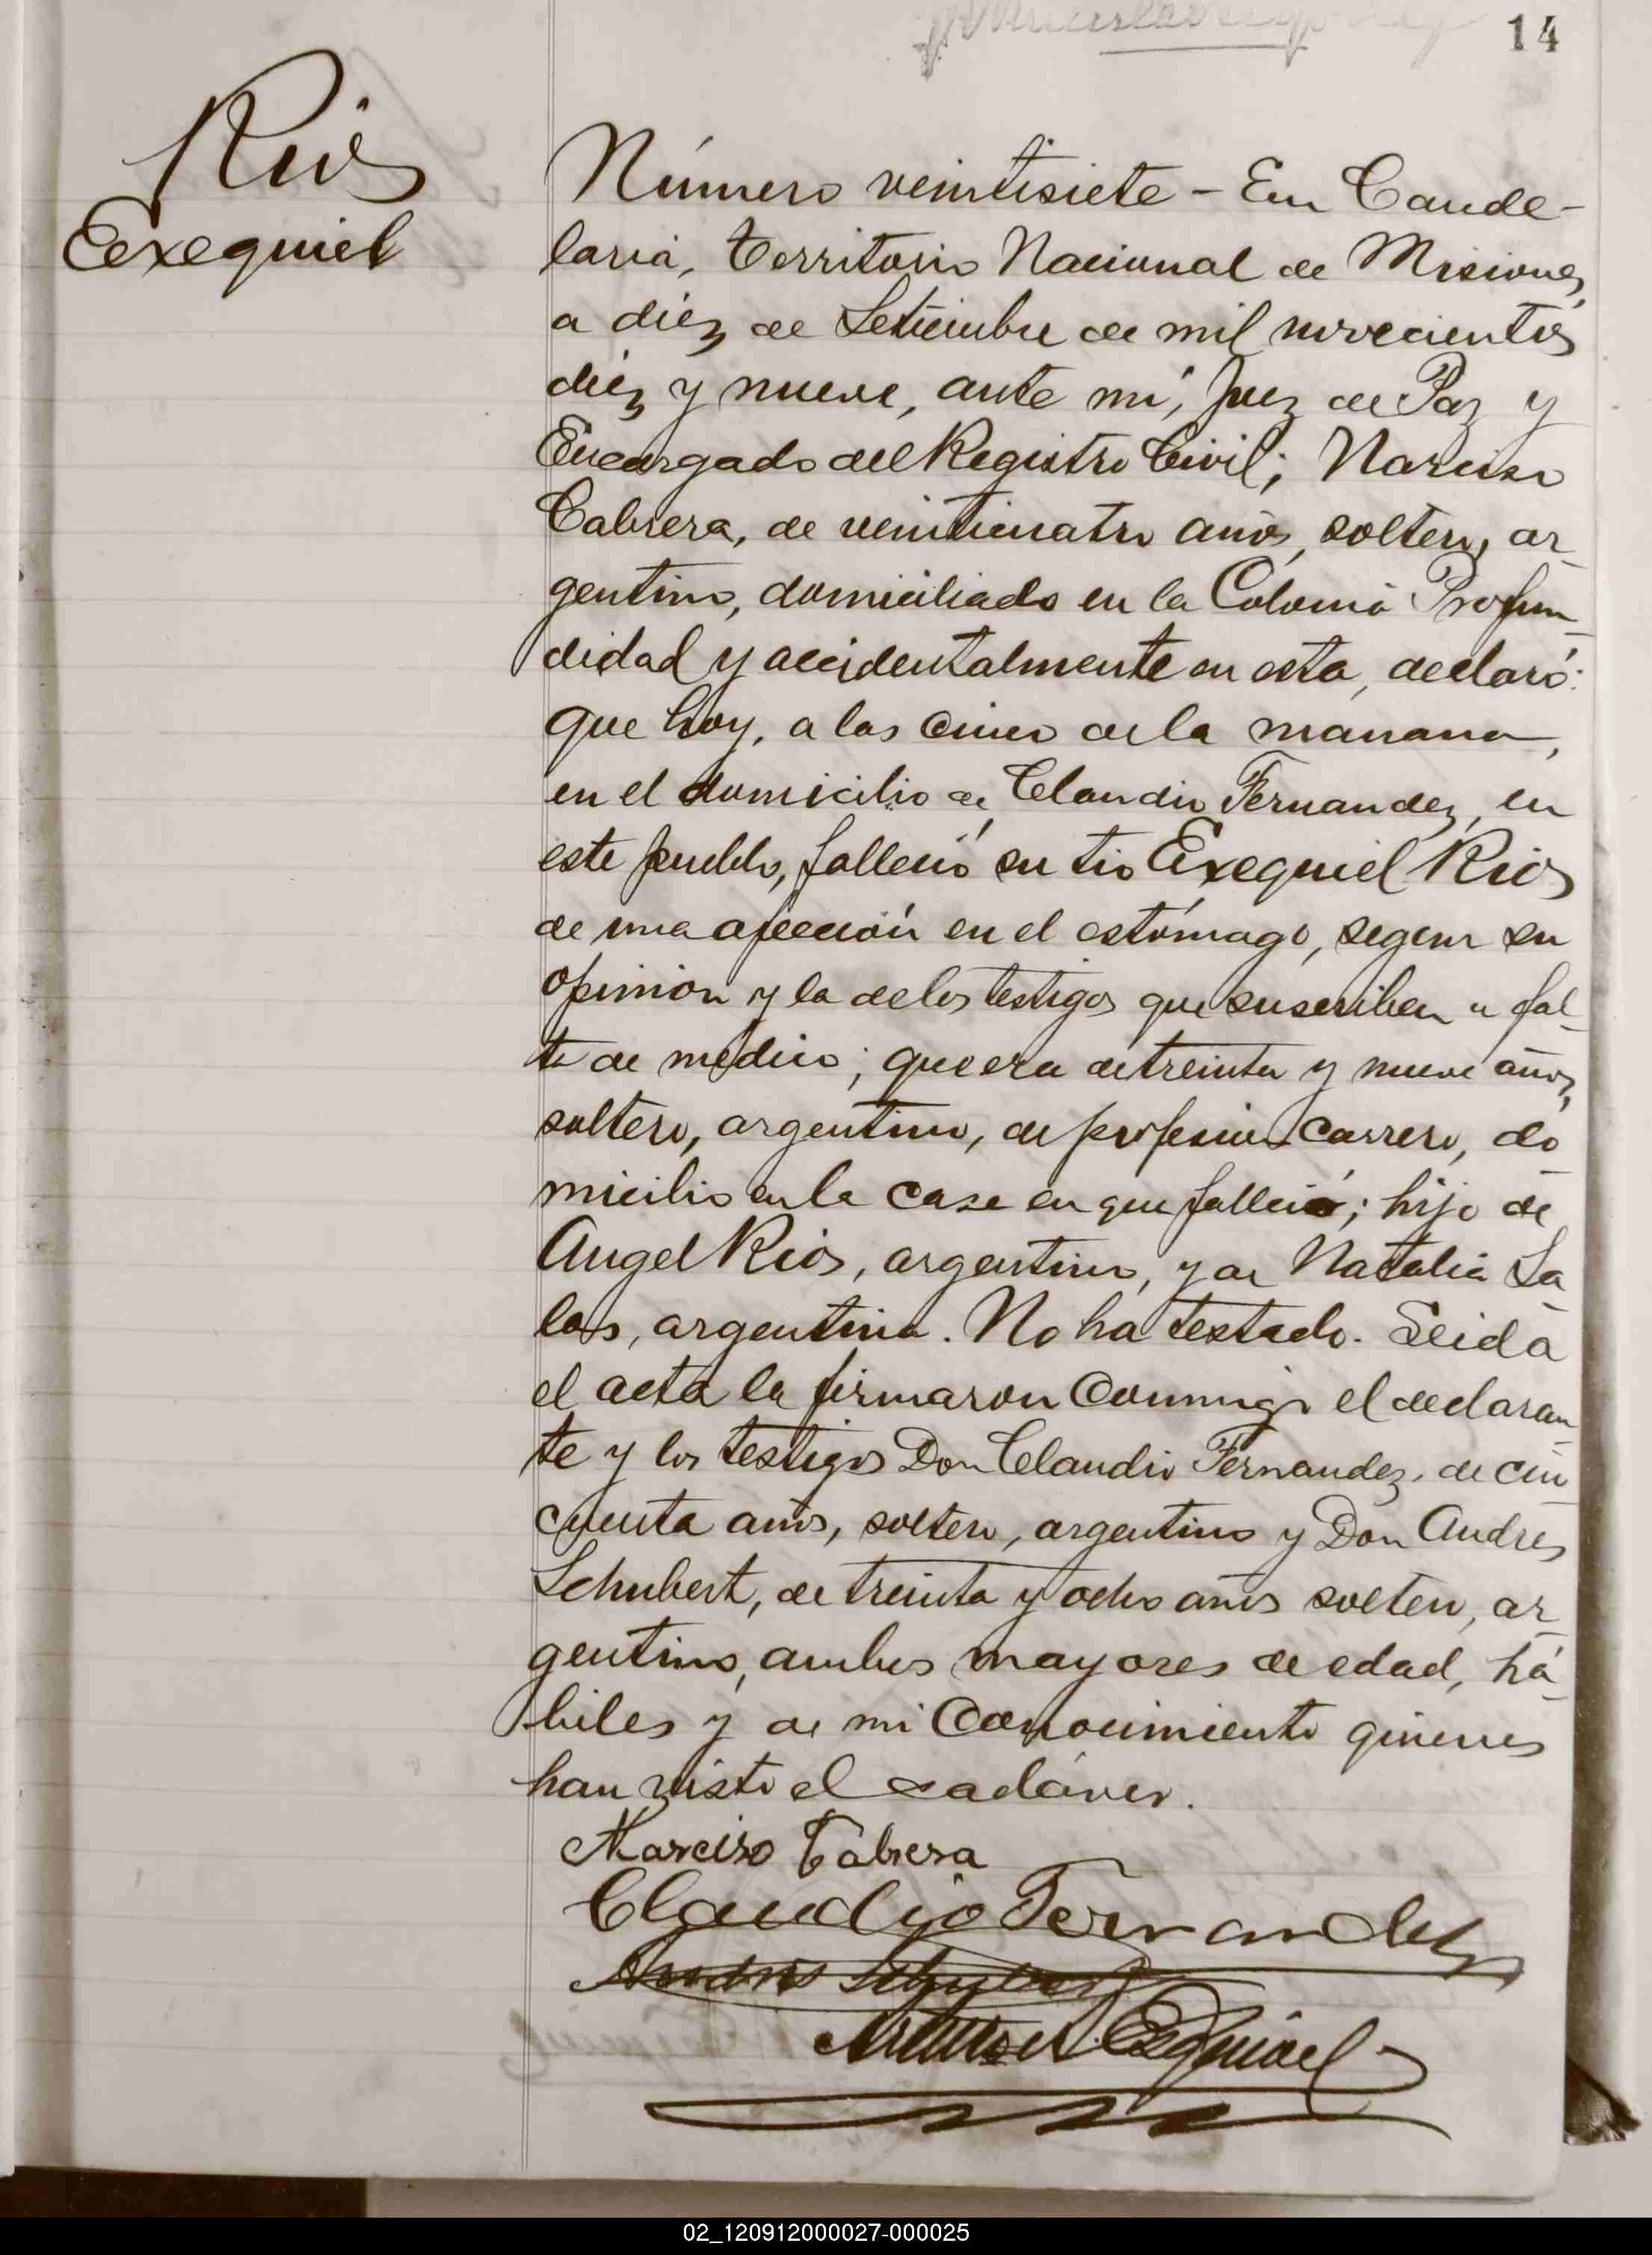 14
Rios
Exequiel
Número veintisiete - En Cande-
laria, Territorio Nacional de Misiones,
a diez de Setiembre de mil novecientos
diez y nueve, ante mí, Juez de Paz y
Encargado del Registro Civil; Narciso
Cabrera, de veinticuatro años, soltero, ar-
gentino, domiciliado en la Colonia Profun-
didad y accidentalmente en esta, declaró:
que hoy, a las cinco de la manana,
en el domicilio de Claudio Fernandez, en
este pueblo, falleció su tio Exequiel Rios
de una afección en el estómago, segun su
opinion y la de los testigos que suscriben a fal-
ta de médico; que era de treinta y nueve años,
soltero, argentino, de profesion carrero, do-
micilio en la casa en que falleció; hijo de
Angel Rios, argentino, y de Natalia Sa-
las, argentina. No ha testado. Leida
el acta la firmaron conmigo el declaran-
te y los testigos Don Claudio Fernandez, de cin-
cuenta años, soltero, argentino y Don Andres
Schubert, de treinta y ocho años soltero, ar-
gentino, ambos mayores de edad, há-
biles y de mi conocimiento quienes
han visto el cadáver.
Narciso Cabrera
Claudio Fernandez
Andres Schubert
Esquivel
02_120912000027-000025